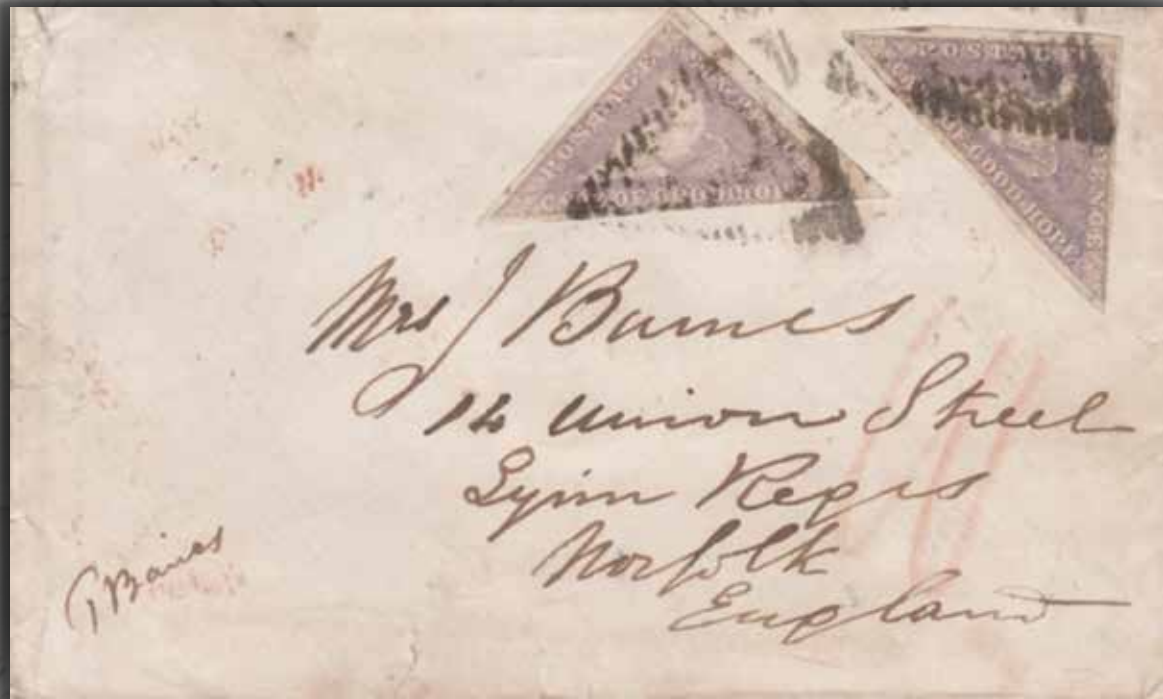 POSTAGE
CAPE OF GOOD HOPE
POSTAGE
OF GOOD HOPE
Mrs J Baines
14 Union Street
Lynn Regis
Norfolk
England
T Baines